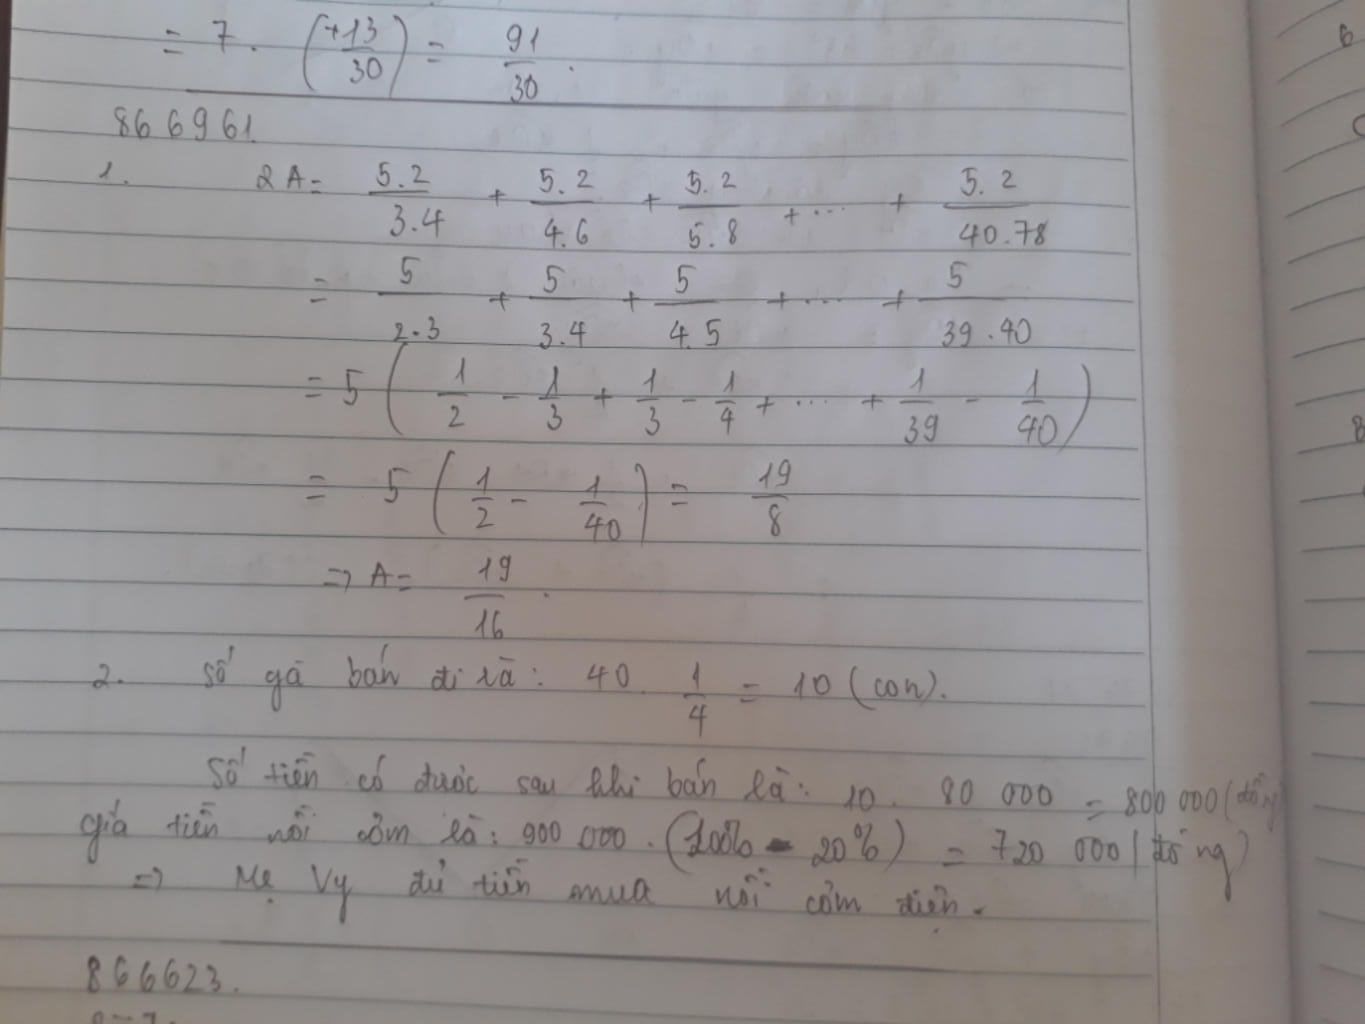 = 7 . (+13/30) = 91/30 .
866961.
1. 2A = 5.2/3.4 + 5.2/4.6 + 5.2/5.8 + ... + 5.2/40.78
= 5/2.3 + 5/3.4 + 5/4.5 + ... + 5/39.40
= 5 ( 1/2 - 1/3 + 1/3 - 1/4 + ... + 1/39 - 1/40 )
= 5 ( 1/2 - 1/40 ) = 19/8
=> A = 19/16 .
2. Số gà bán đi là : 40 . 1/4 = 10 (con).
Số tiền có được sau khi bán là : 10 . 80 000 = 800 000 (đồng
giá tiền nồi cơm là : 900 000 . (100% - 20%) = 720 000 (đồng)
=> Mẹ Vy đủ tiền mua nồi cơm điện.
866623.